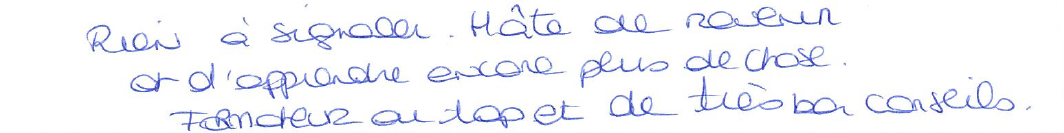 Rien à signaler. Hâte de revenir
et d'apprendre encore plus de chose.
Formateur au top et de très bon conseils.